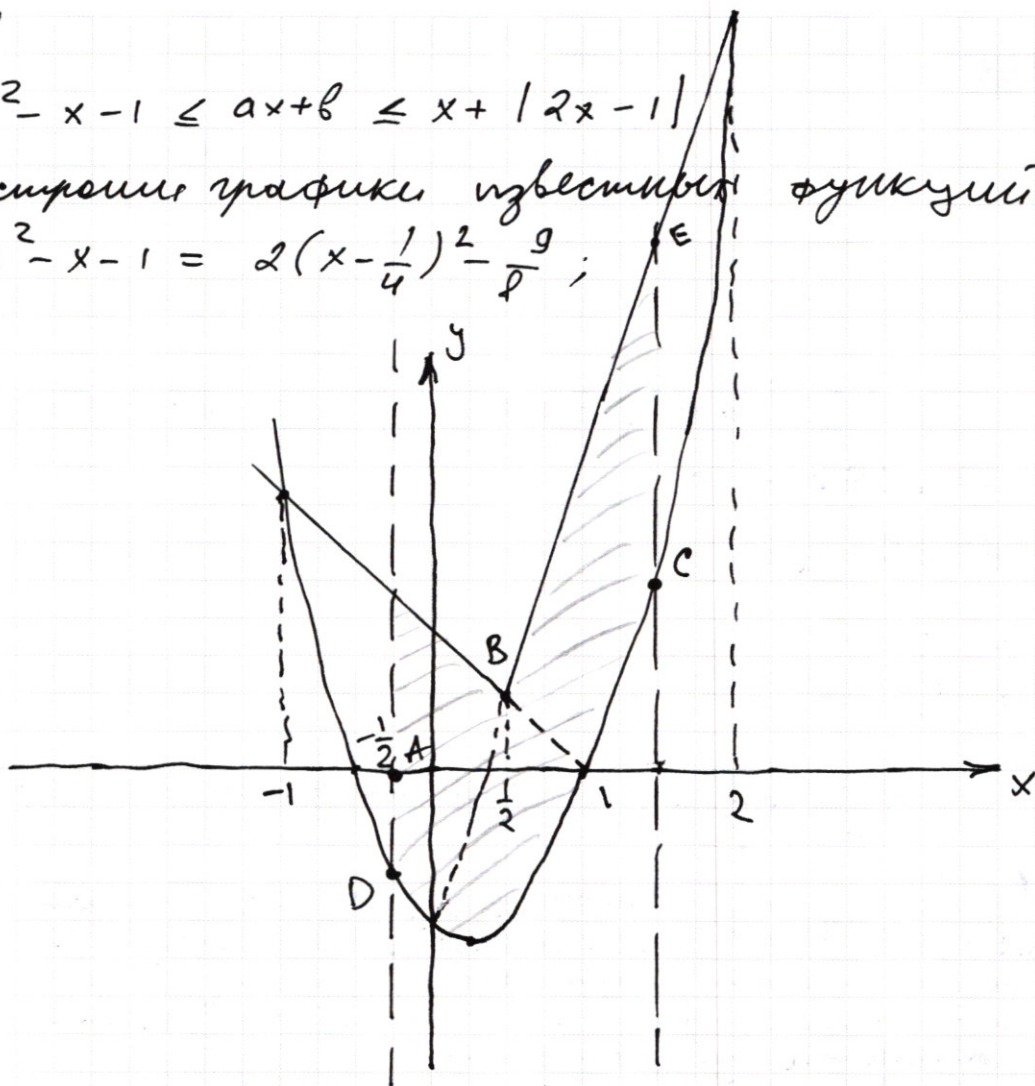 ² - x - 1 ≤ ax + b ≤ x + |2x - 1|
строим графики известных функций
² - x - 1 = 2(x - 1/4)² - 9/8 ;
E
y
C
B
-1/2 A
-1
1/2
1
2
x
D